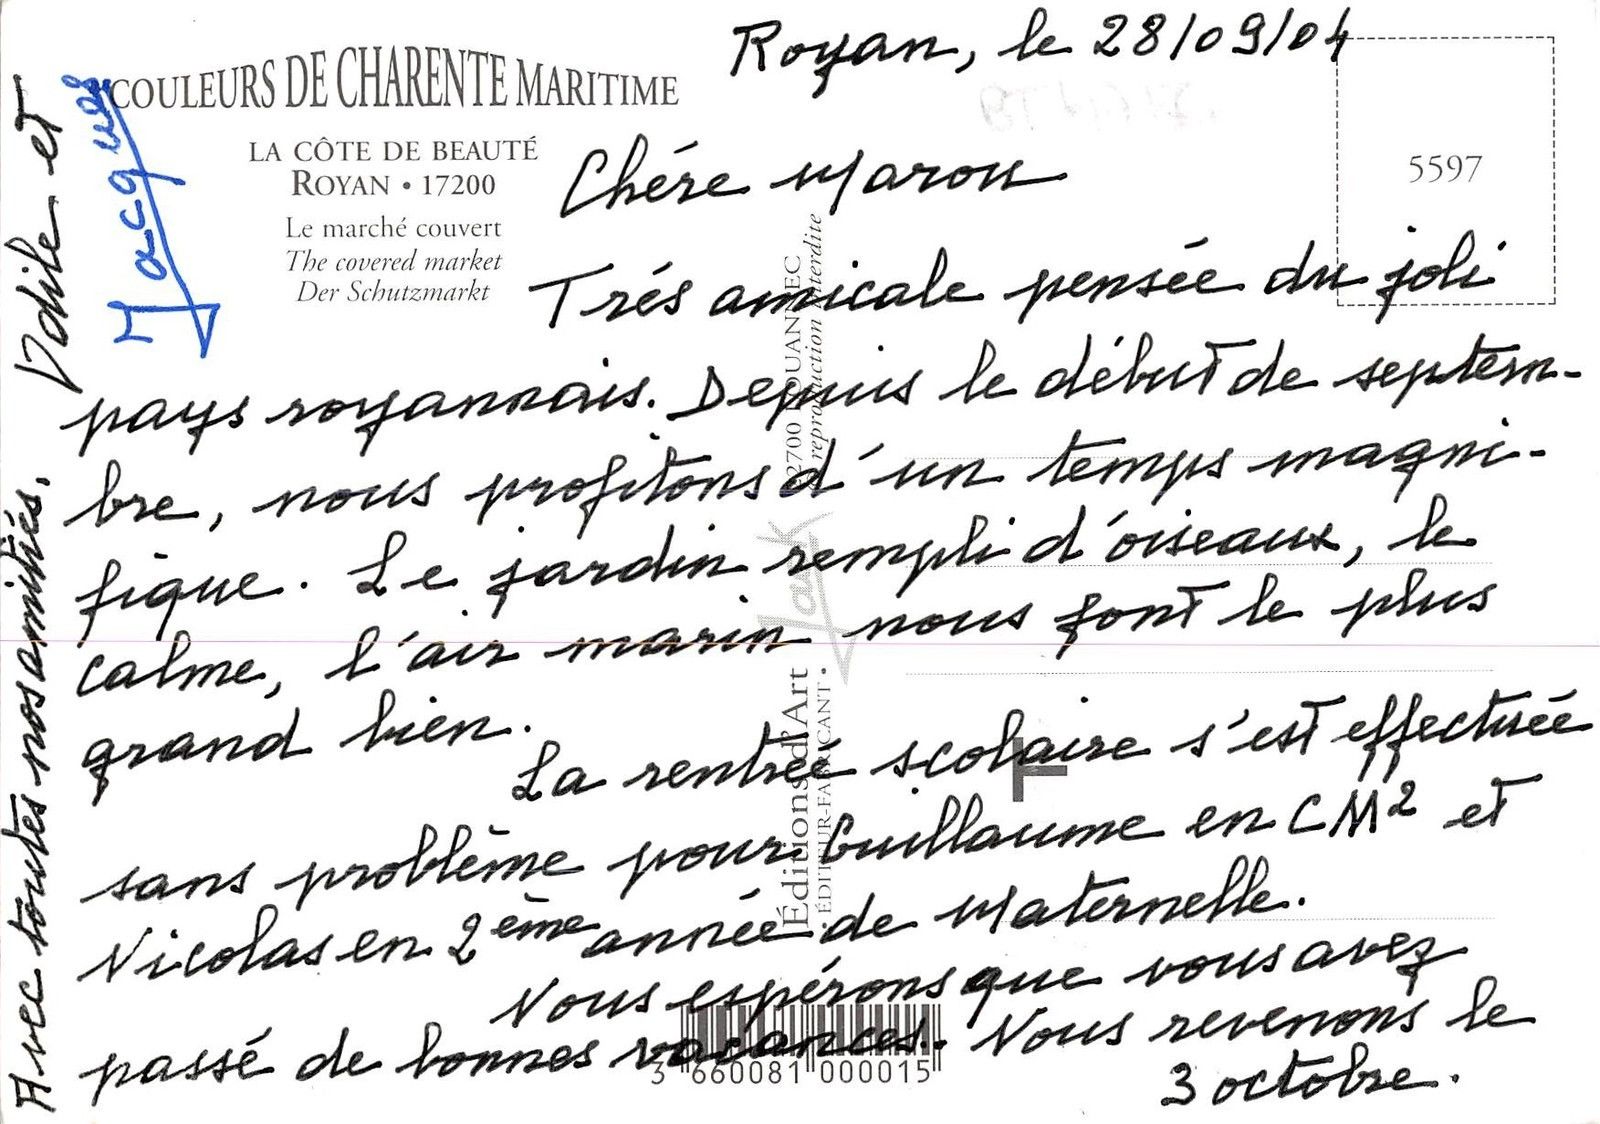 COULEURS DE CHARENTE MARITIME
LA CÔTE DE BEAUTÉ
ROYAN • 17200
Le marché couvert
The covered market
Der Schutzmarkt
5597
Royan, le 28/09/04
Chére Marou
Trés amicale pensée du joli
pays royannais. Depuis le début de septem-
bre, nous profitons d'un temps magni-
fique. Le jardin rempli d'oiseaux, le
calme, l'air marin nous font le plus
grand bien.
La rentrée scolaire s'est effectuée
sans problème pour Guillaume en CM2 et
Nicolas en 2ème année de Maternelle.
Nous espérons que vous avez
passé de bonnes vacances. Nous revenons le
3 octobre.
Avec toutes nos amitiés, Odile et
Jacques
Éditions d'Art
Jack
ÉDITEUR-FABRICANT •
reproduction interdite
3 660081 000015